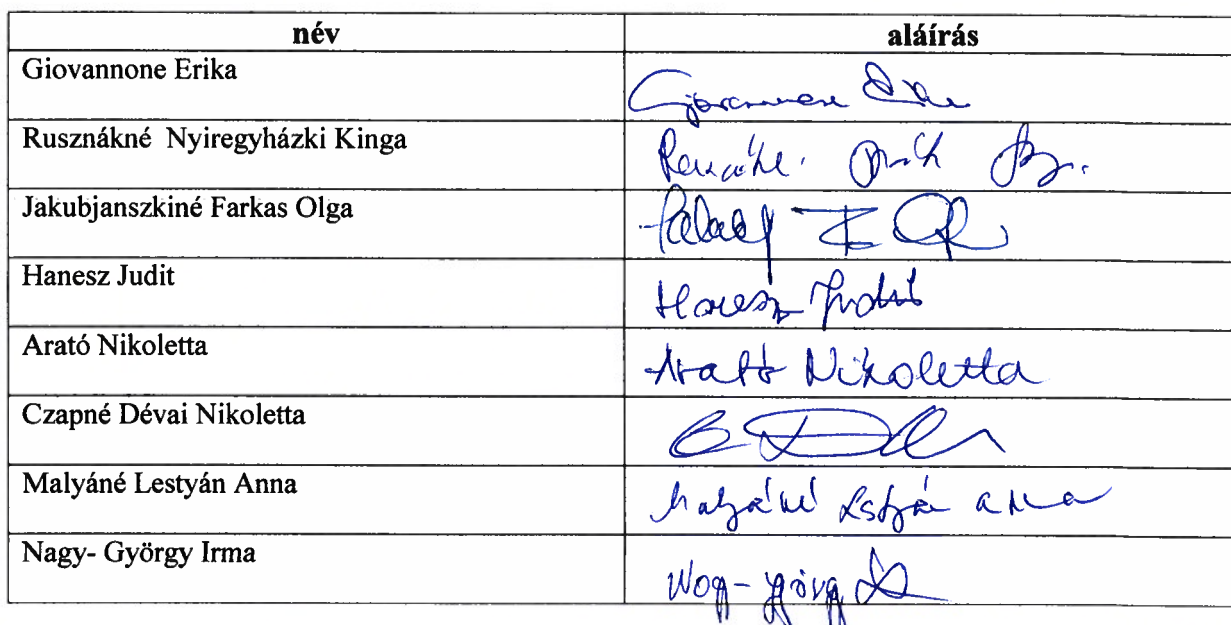 név aláírás
Giovannone Erika
Rusznákné Nyiregyházki Kinga
Jakubjanszkiné Farkas Olga
Hanesz Judit Hanesz Judit
Arató Nikoletta Arató Nikoletta
Czapné Dévai Nikoletta
Malyáné Lestyán Anna Malyáné Lestyán Anna
Nagy- György Irma